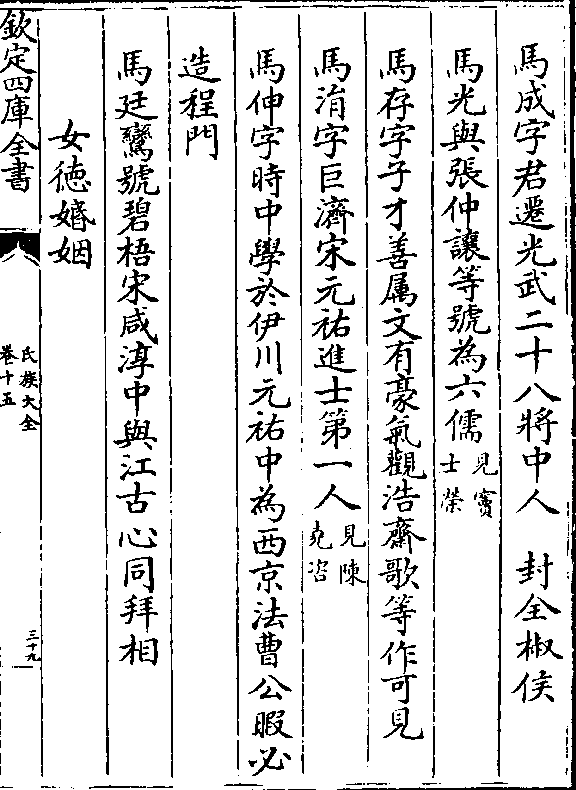 馬成字君遷光武二十八將中人　封全椒侯
馬光與張仲讓等號為六儒見竇士榮
馬存字子才善属文有豪氣觀浩齋歌等作可見
馬涓字巨濟宋元祐進士第一人見陳堯咨
馬伸字時中學於伊川元祐中為西京法曹公暇必
造程門
馬廷鸞號碧梧宋咸淳中與江古心同拜相
女徳婚姻
欽定四庫全書
氏族大全
卷十五
三十九